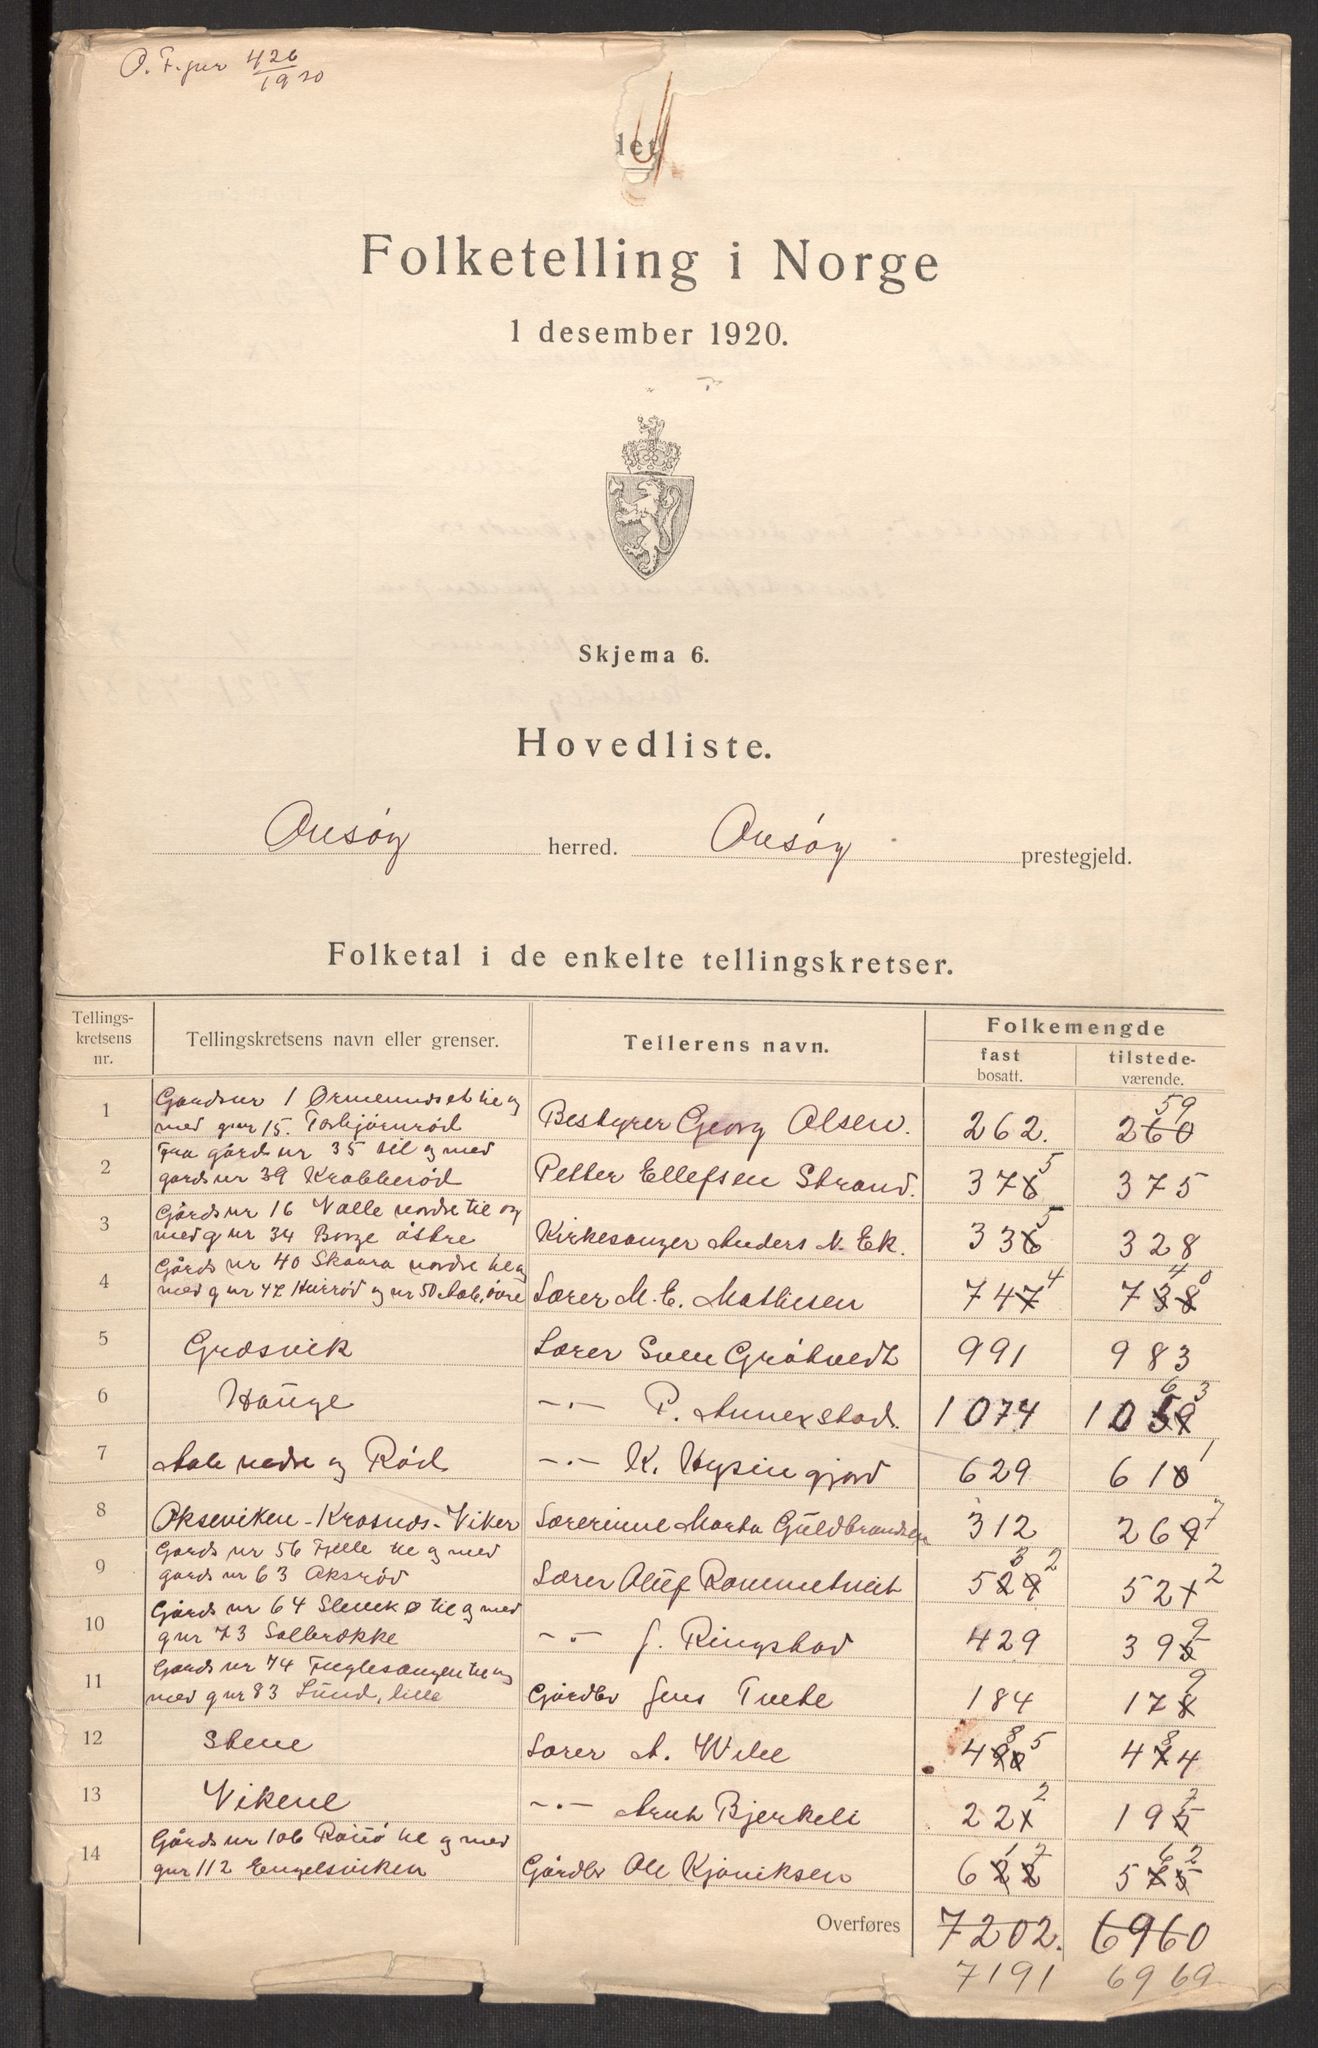 O. F. jnr 426/1920
det
Folketelling i Norge
1 desember 1920.
Skjema 6.
Hovedliste.
Onsøy herred. Onsøy prestegjeld.
Folketal i de enkelte tellingskretser.
Tellings-kretsens nr. Tellingskretsens navn eller grenser. Tellerens navn. Folkemengde
fast bosatt. tilstede-værende.
1 Gaardsnr 1 Ørmenundset til og
med gnr 15. Torbjørnrød Bestyrer Georg Olsen. 262. 260 59
2 Fra gårds nr 35 til og med
gards nr 39 Krabberød Petter Ellefsen Strand. 376 5 375
3 Gårds nr 16 Valle nordre til og
med g nr 34 Borge østre Kirkesanger Anders N. Ek. 336 5 328
4 Gårds nr 40 Skaara nordre til og
med g nr 47 Hurrød og nr 50 Aale, øvre Lærer M. E. Mathiesen 747 4 738 40
5 Græsvik Lærer Sven Grøtvedt 991 983
6 Hauge -"- P. Annexstad. 1074 1059 63
7 Aale nedre og Rød -"- K. Hysingjord 629 610 1
8 Økeviken - Kraknes - Viker Lærerinne Marta Guldbrandsen 312 269 7
9 Gards nr 56 Fjelle til og med
gards nr 63 Aksrød Lærer Oluf Rommetveit 529 32 521 2
10 Gårds nr 64 Slevik ø til og med
gnr 73 Solbrække -"- J. Ringstad 429 395 9
11 Gards nr 74 Fuglesangen til og
med gnr 83 Lund, lille Gårdbr Jens Tvete 184 178 9
12 Stene Lærer A. Wiel 490 85 474 8
13 Vikene -"- Arnt Bjerkeli 221 2 195 7
14 Gårds nr 106 Rauø til og med
gnr 112 Engelsviken Gårdbr Ole Kjøniksen 622 17 575 62
Overføres 7202. 6960
7191 6969